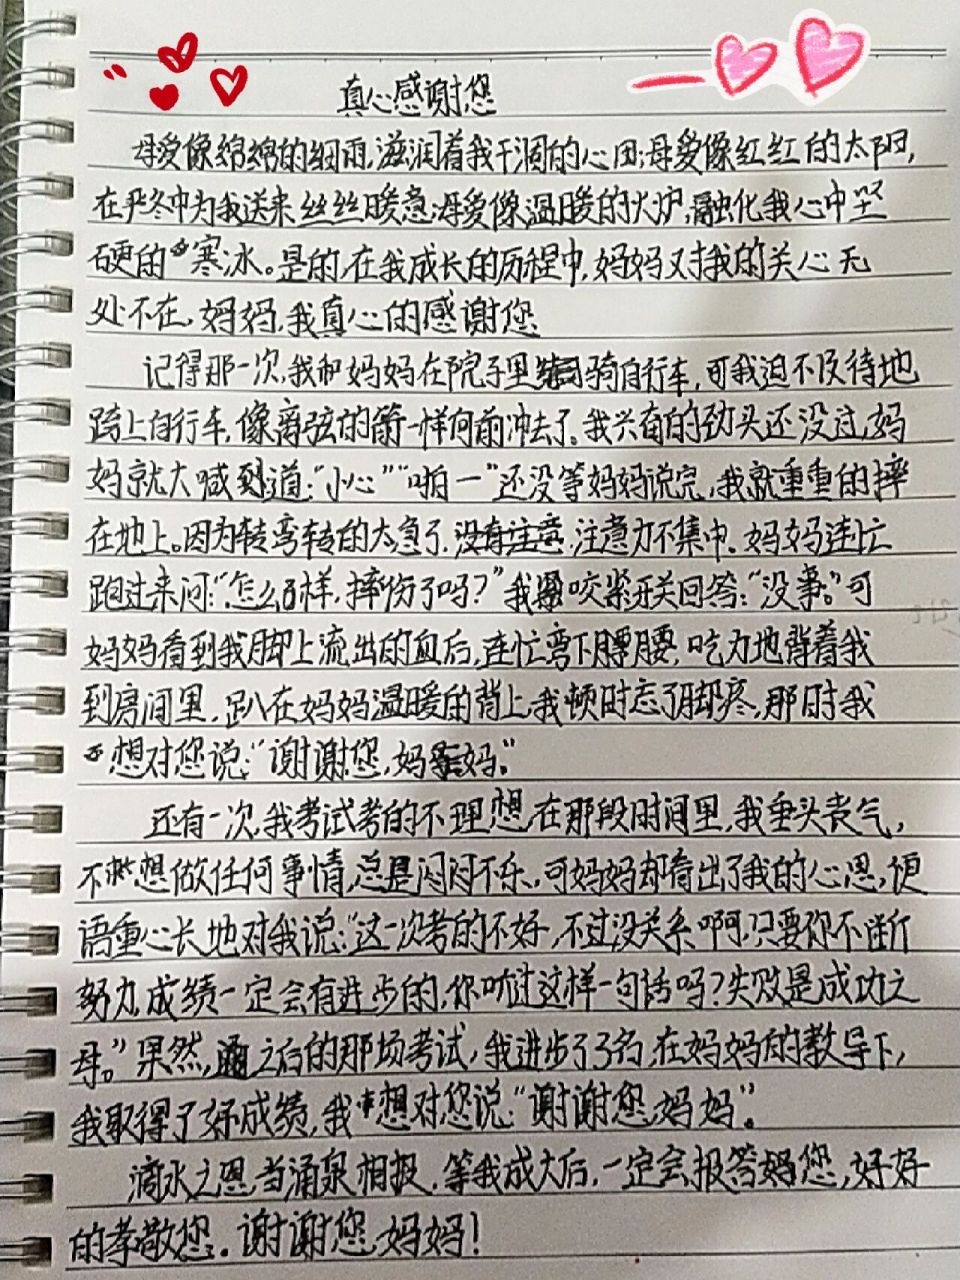 真心感谢您
母爱像绵绵的细雨,滋润着我干涸的心田;母爱像红红的太阳,
在严冬中为我送来丝丝暖意;母爱像温暖的火炉,融化我心中坚
硬的寒冰。是的,在我成长的历程中,妈妈对我的关心无
处不在,妈妈,我真心的感谢您
记得那一次,我和妈妈在院子里骑自行车,可我迫不及待地
跨上自行车,像离弦的箭一样向前冲去了。我兴奋的劲头还没过,妈
妈就大喊到道:“小心”“啪一”还没等妈妈说完,我就重重的摔
在地上。因为转弯转的太急了,没有注意,注意力不集中。妈妈连忙
跑过来问:“怎么样,摔伤了吗?”我咬紧牙关回答:“没事。”可
妈妈看到我脚上流出的血后,连忙弯下腰,吃力地背着我
到房间里,趴在妈妈温暖的背上,我顿时忘了脚疼,那时我
想对您说:“谢谢您,妈妈。”
还有一次,我考试考的不理想,在那段时间里,我垂头丧气,
不想做任何事情,总是闷闷不乐,可妈妈却看出了我的心思,便
语重心长地对我说:“这一次考的不好,不过没关系啊,只要你不断
努力,成绩一定会有进步的,你听过这样一句话吗?失败是成功之
母。”果然,之后的那场考试,我进步了3名,在妈妈的教导下,
我取得了好成绩,我想对您说:“谢谢您,妈妈”。
滴水之恩,当涌泉相报,等我成大后,一定会报答妈您,好好
的孝敬您。谢谢您,妈妈!